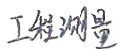 工程测量